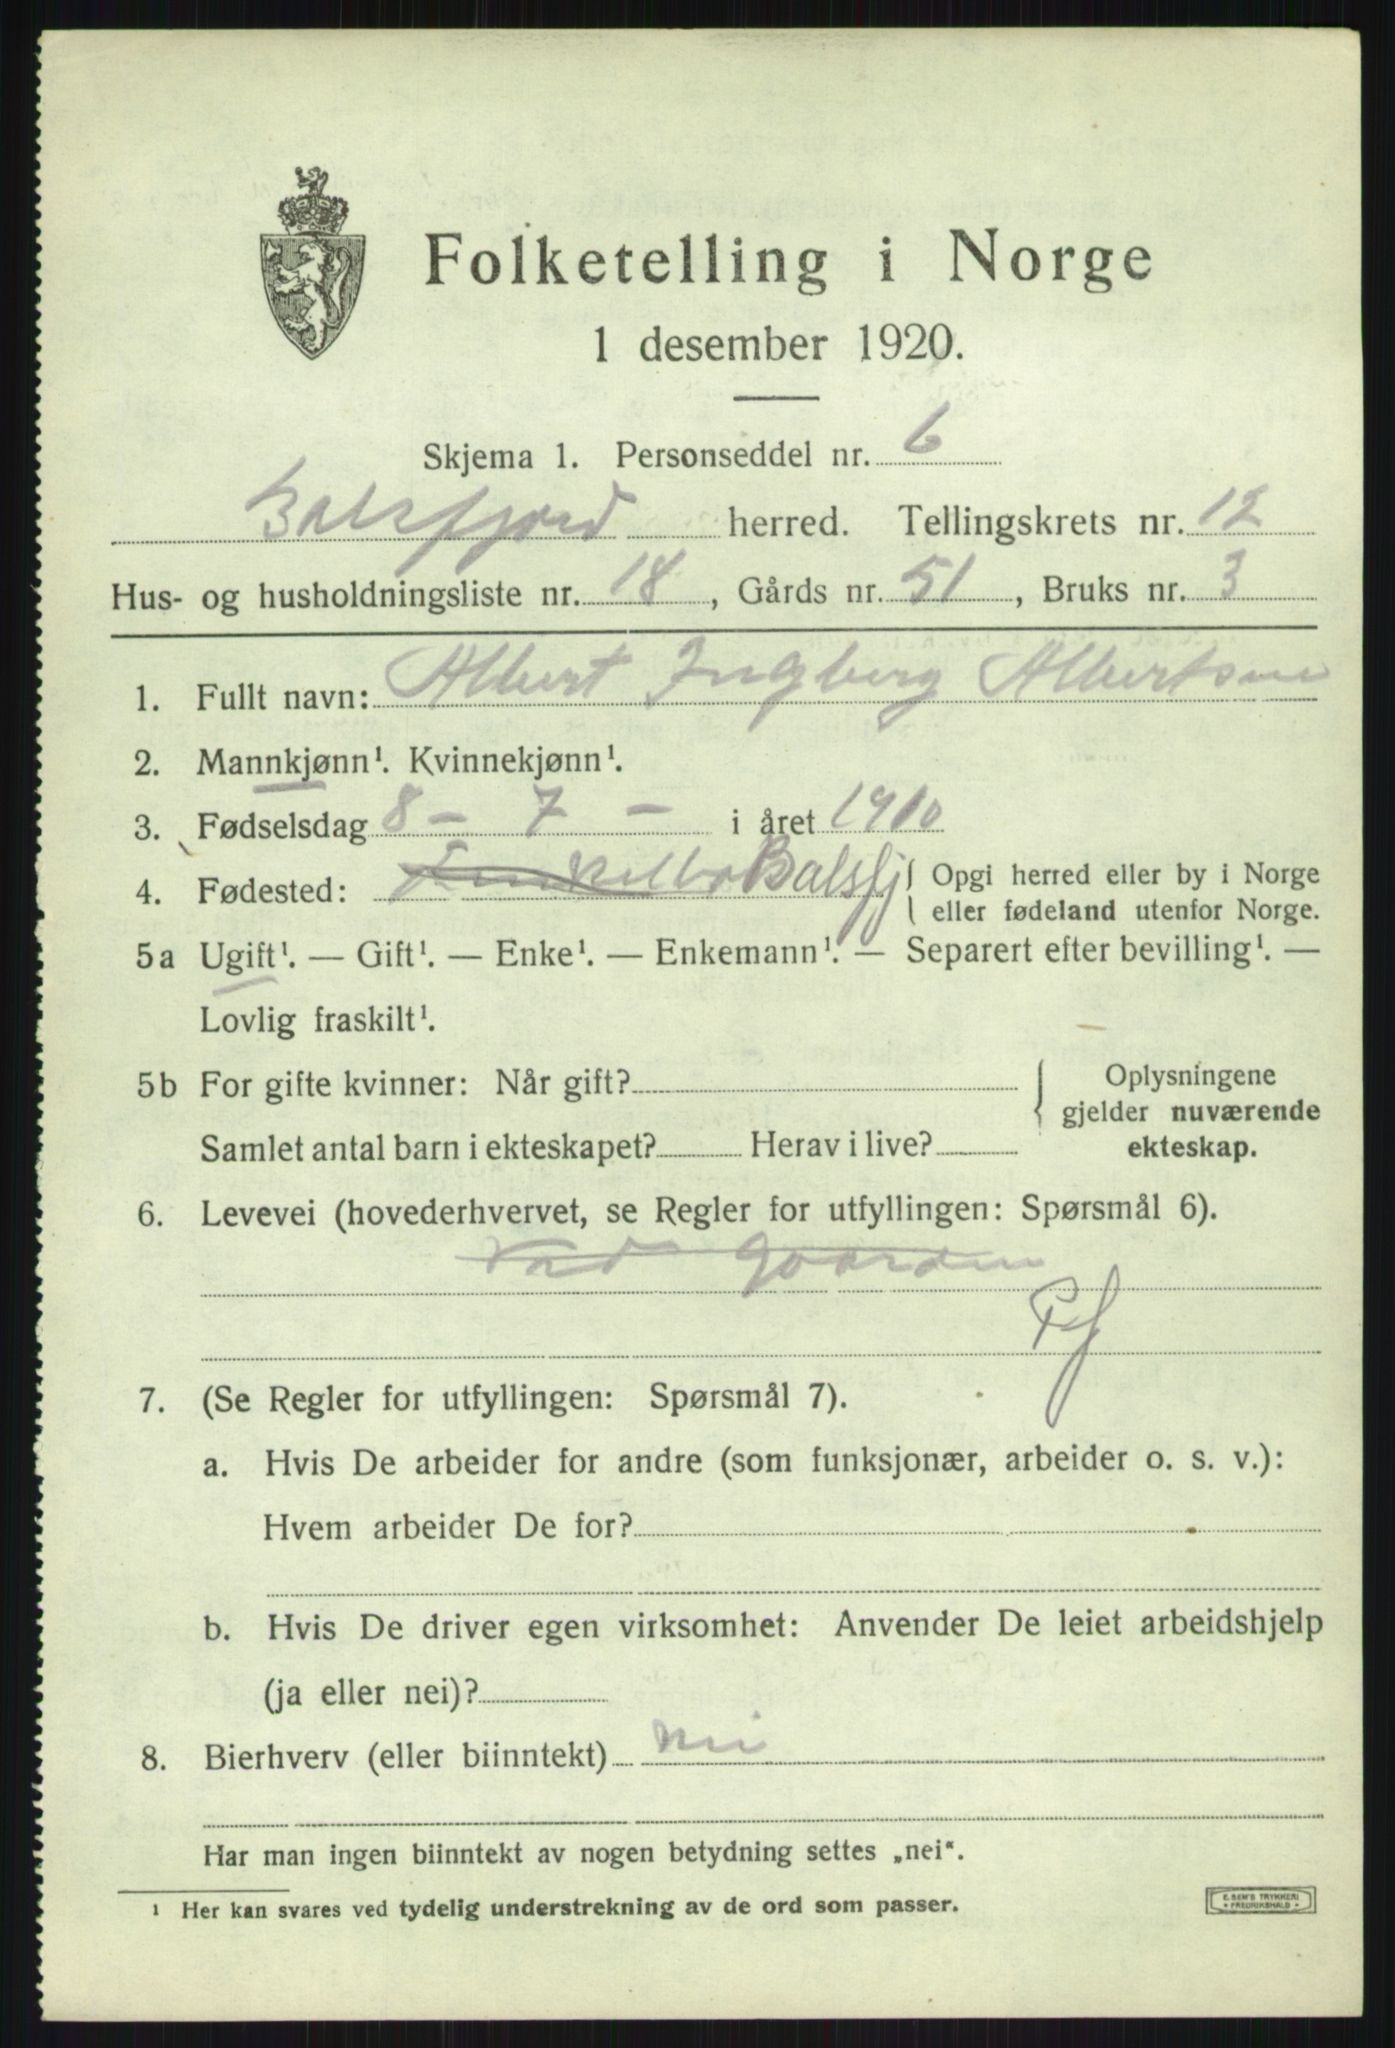 Folketelling i Norge
1 desember 1920.
Skjema 1. Personseddel nr. 6
Balsfjord herred. Tellingskrets nr. 12
Hus- og husholdningsliste nr. 18, Gårds nr. 51, Bruks nr. 3
1. Fullt navn: Albert Ingberg Albertsen
2. Mannkjønn¹. Kvinnekjønn¹.
3. Fødselsdag 8 - 7 - i året 1910
4. Fødested: Balsfj { Opgi herred eller by i Norge
eller fødeland utenfor Norge.
5a Ugift¹. — Gift¹. — Enke¹. — Enkemann¹. — Separert efter bevilling¹. —
Lovlig fraskilt¹.
5b For gifte kvinner: Når gift? { Oplysningene
gjelder nuværende
Samlet antal barn i ekteskapet? Herav i live? ekteskap.
6. Levevei (hovederhvervet, se Regler for utfyllingen: Spørsmål 6).
Ved gaarden
7. (Se Regler for utfyllingen: Spørsmål 7).
a. Hvis De arbeider for andre (som funksjonær, arbeider o. s. v.):
Hvem arbeider De for?
b. Hvis De driver egen virksomhet: Anvender De leiet arbeidshjelp
(ja eller nei)?
8. Bierhverv (eller biinntekt) nei
Har man ingen biinntekt av nogen betydning settes „nei“.
¹ Her kan svares ved tydelig understrekning av de ord som passer.
E. SEM'S TRYKKERI
* FREDRIKSHALD *